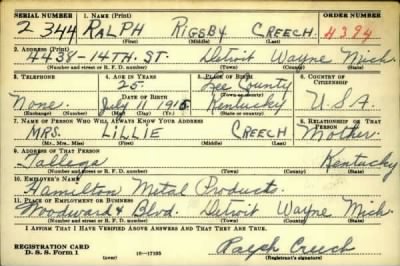 SERIAL NUMBER 1. NAME (Print) ORDER NUMBER
2344 RALPH RIGSBY CREECH 4394
(First) (Middle) (Last)
2. ADDRESS (Print)
4438-14TH. ST. Detroit Wayne Mich.
(Number and street or R. F. D. number) (Town) (County) (State)
3. TELEPHONE 4. AGE IN YEARS 5. PLACE OF BIRTH 6. COUNTRY OF CITIZENSHIP
25 Lee County
DATE OF BIRTH (Town or county)
None. July 11 1915 Kentucky U.S.A.
(Exchange) (Number) (Mo.) (Day) (Yr.) (State or country)
7. NAME OF PERSON WHO WILL ALWAYS KNOW YOUR ADDRESS 8. RELATIONSHIP OF THAT PERSON
MRS. LILLIE CREECH Mother.
(Mr., Mrs., Miss) (First) (Middle) (Last)
9. ADDRESS OF THAT PERSON
Tallega Kentucky
(Number and street or R. F. D. number) (Town) (County) (State)
10. EMPLOYER'S NAME
Hamilton Metal Products.
11. PLACE OF EMPLOYMENT OR BUSINESS
Woodward & Blvd. Detroit Wayne Mich.
(Number and street or R. F. D. number) (Town) (County) (State)
I AFFIRM THAT I HAVE VERIFIED ABOVE ANSWERS AND THAT THEY ARE TRUE.
REGISTRATION CARD
D. S. S. Form 1 (over) 16—17105 Ralph Creech
(Registrant's signature)